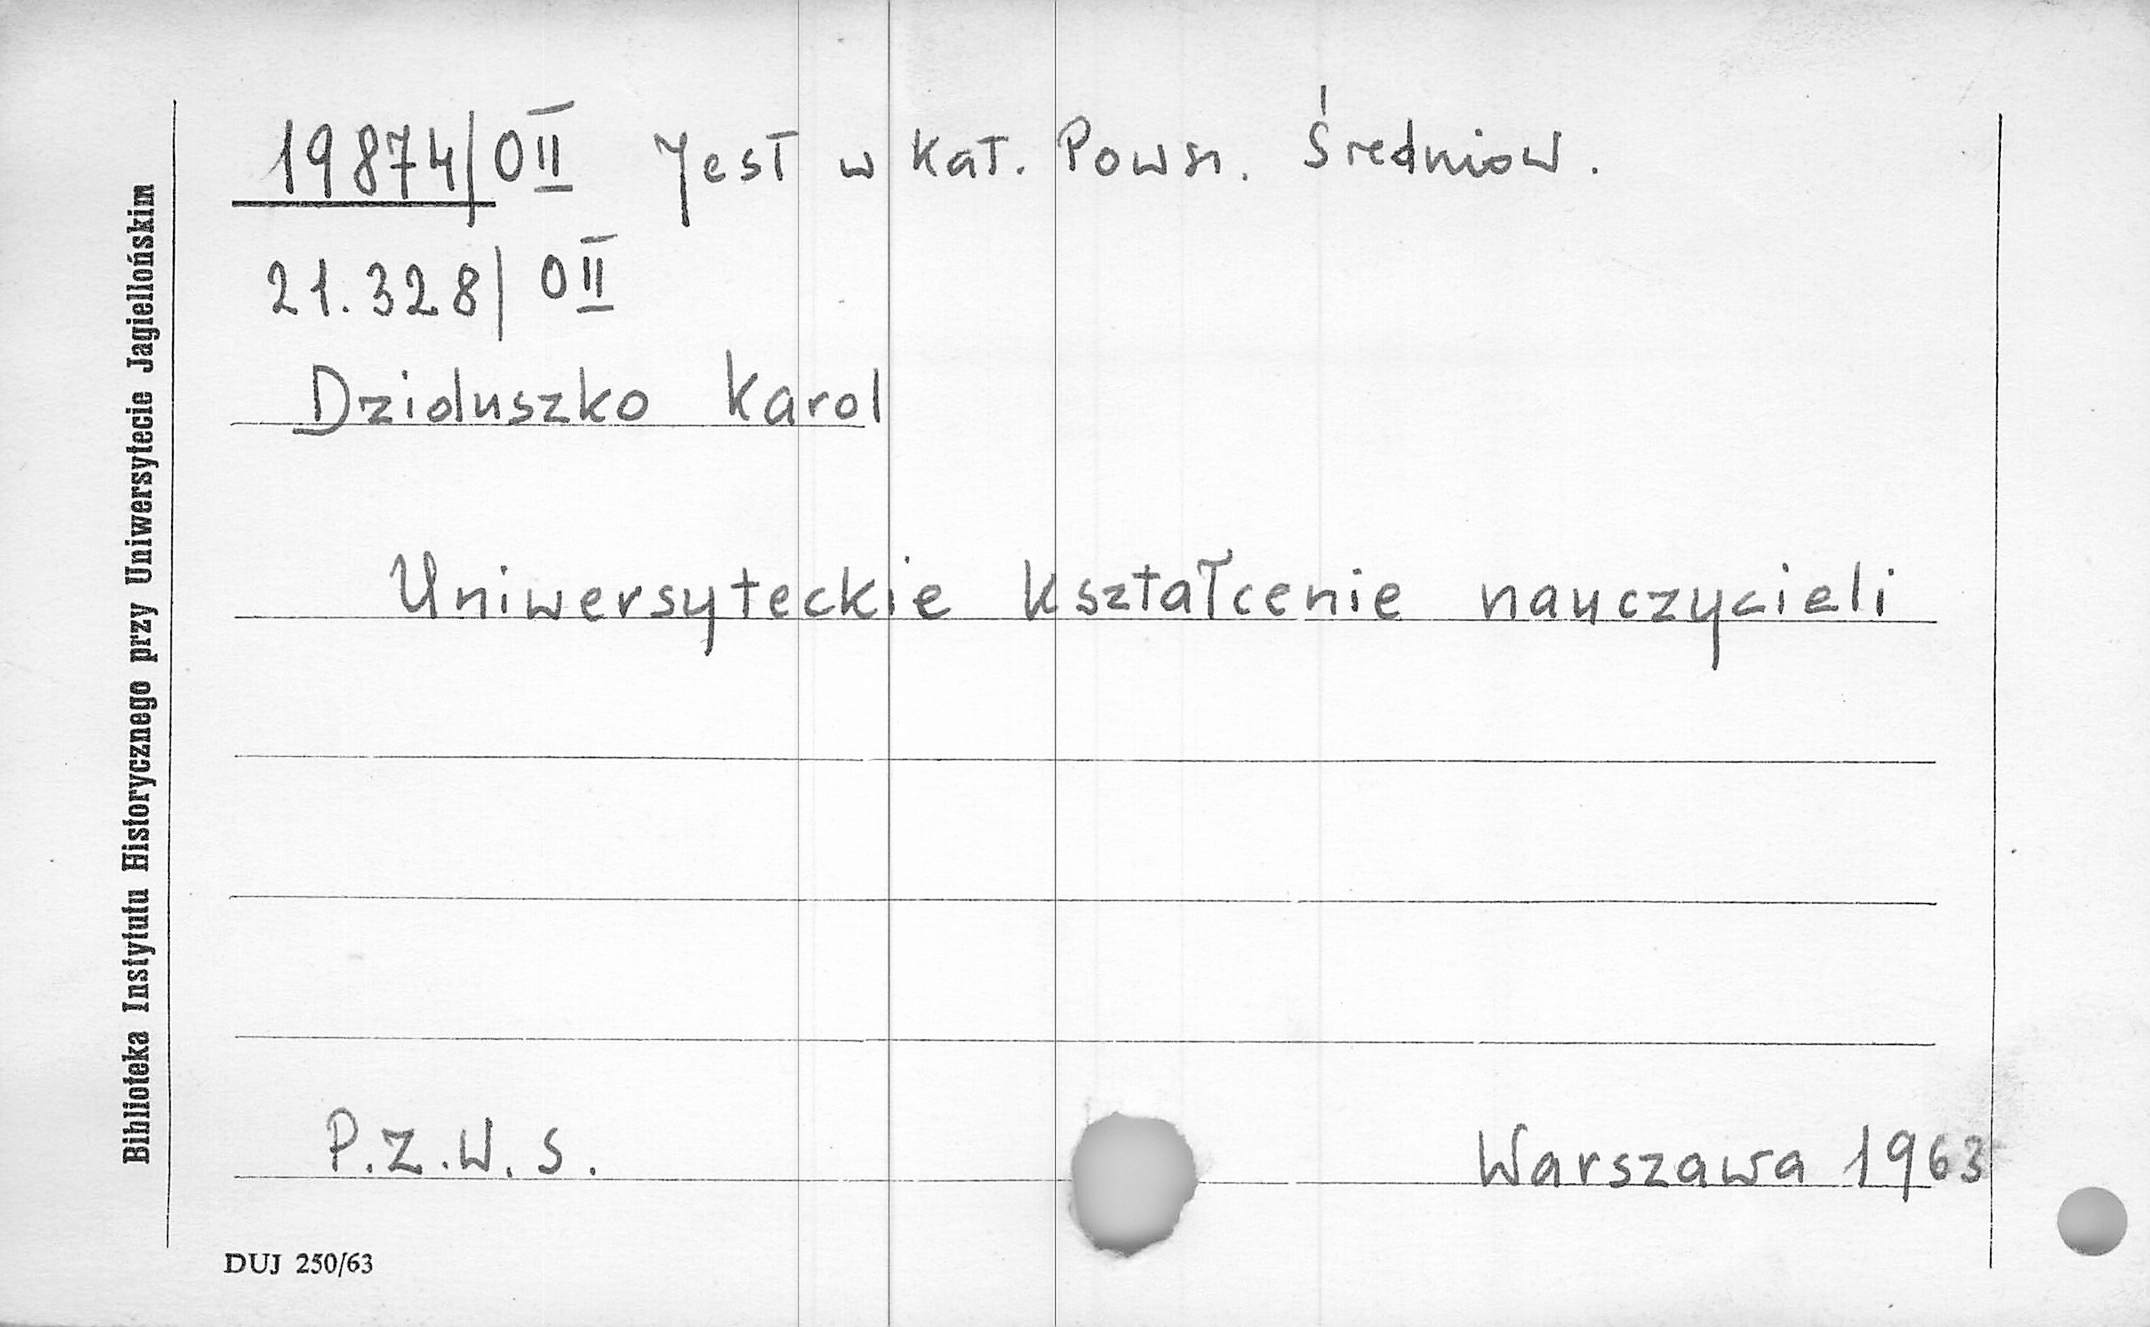 19874/O II Jest w kat. Powsz. Średniow.
21.328/ O II
Dziduszko Karol
Uniwersyteckie kształcenie nauczycieli
P.Z.W.S.
Warszawa 1963
DUJ 250/63
Biblioteka Instytutu Historycznego przy Uniwersytecie Jagiellońskim